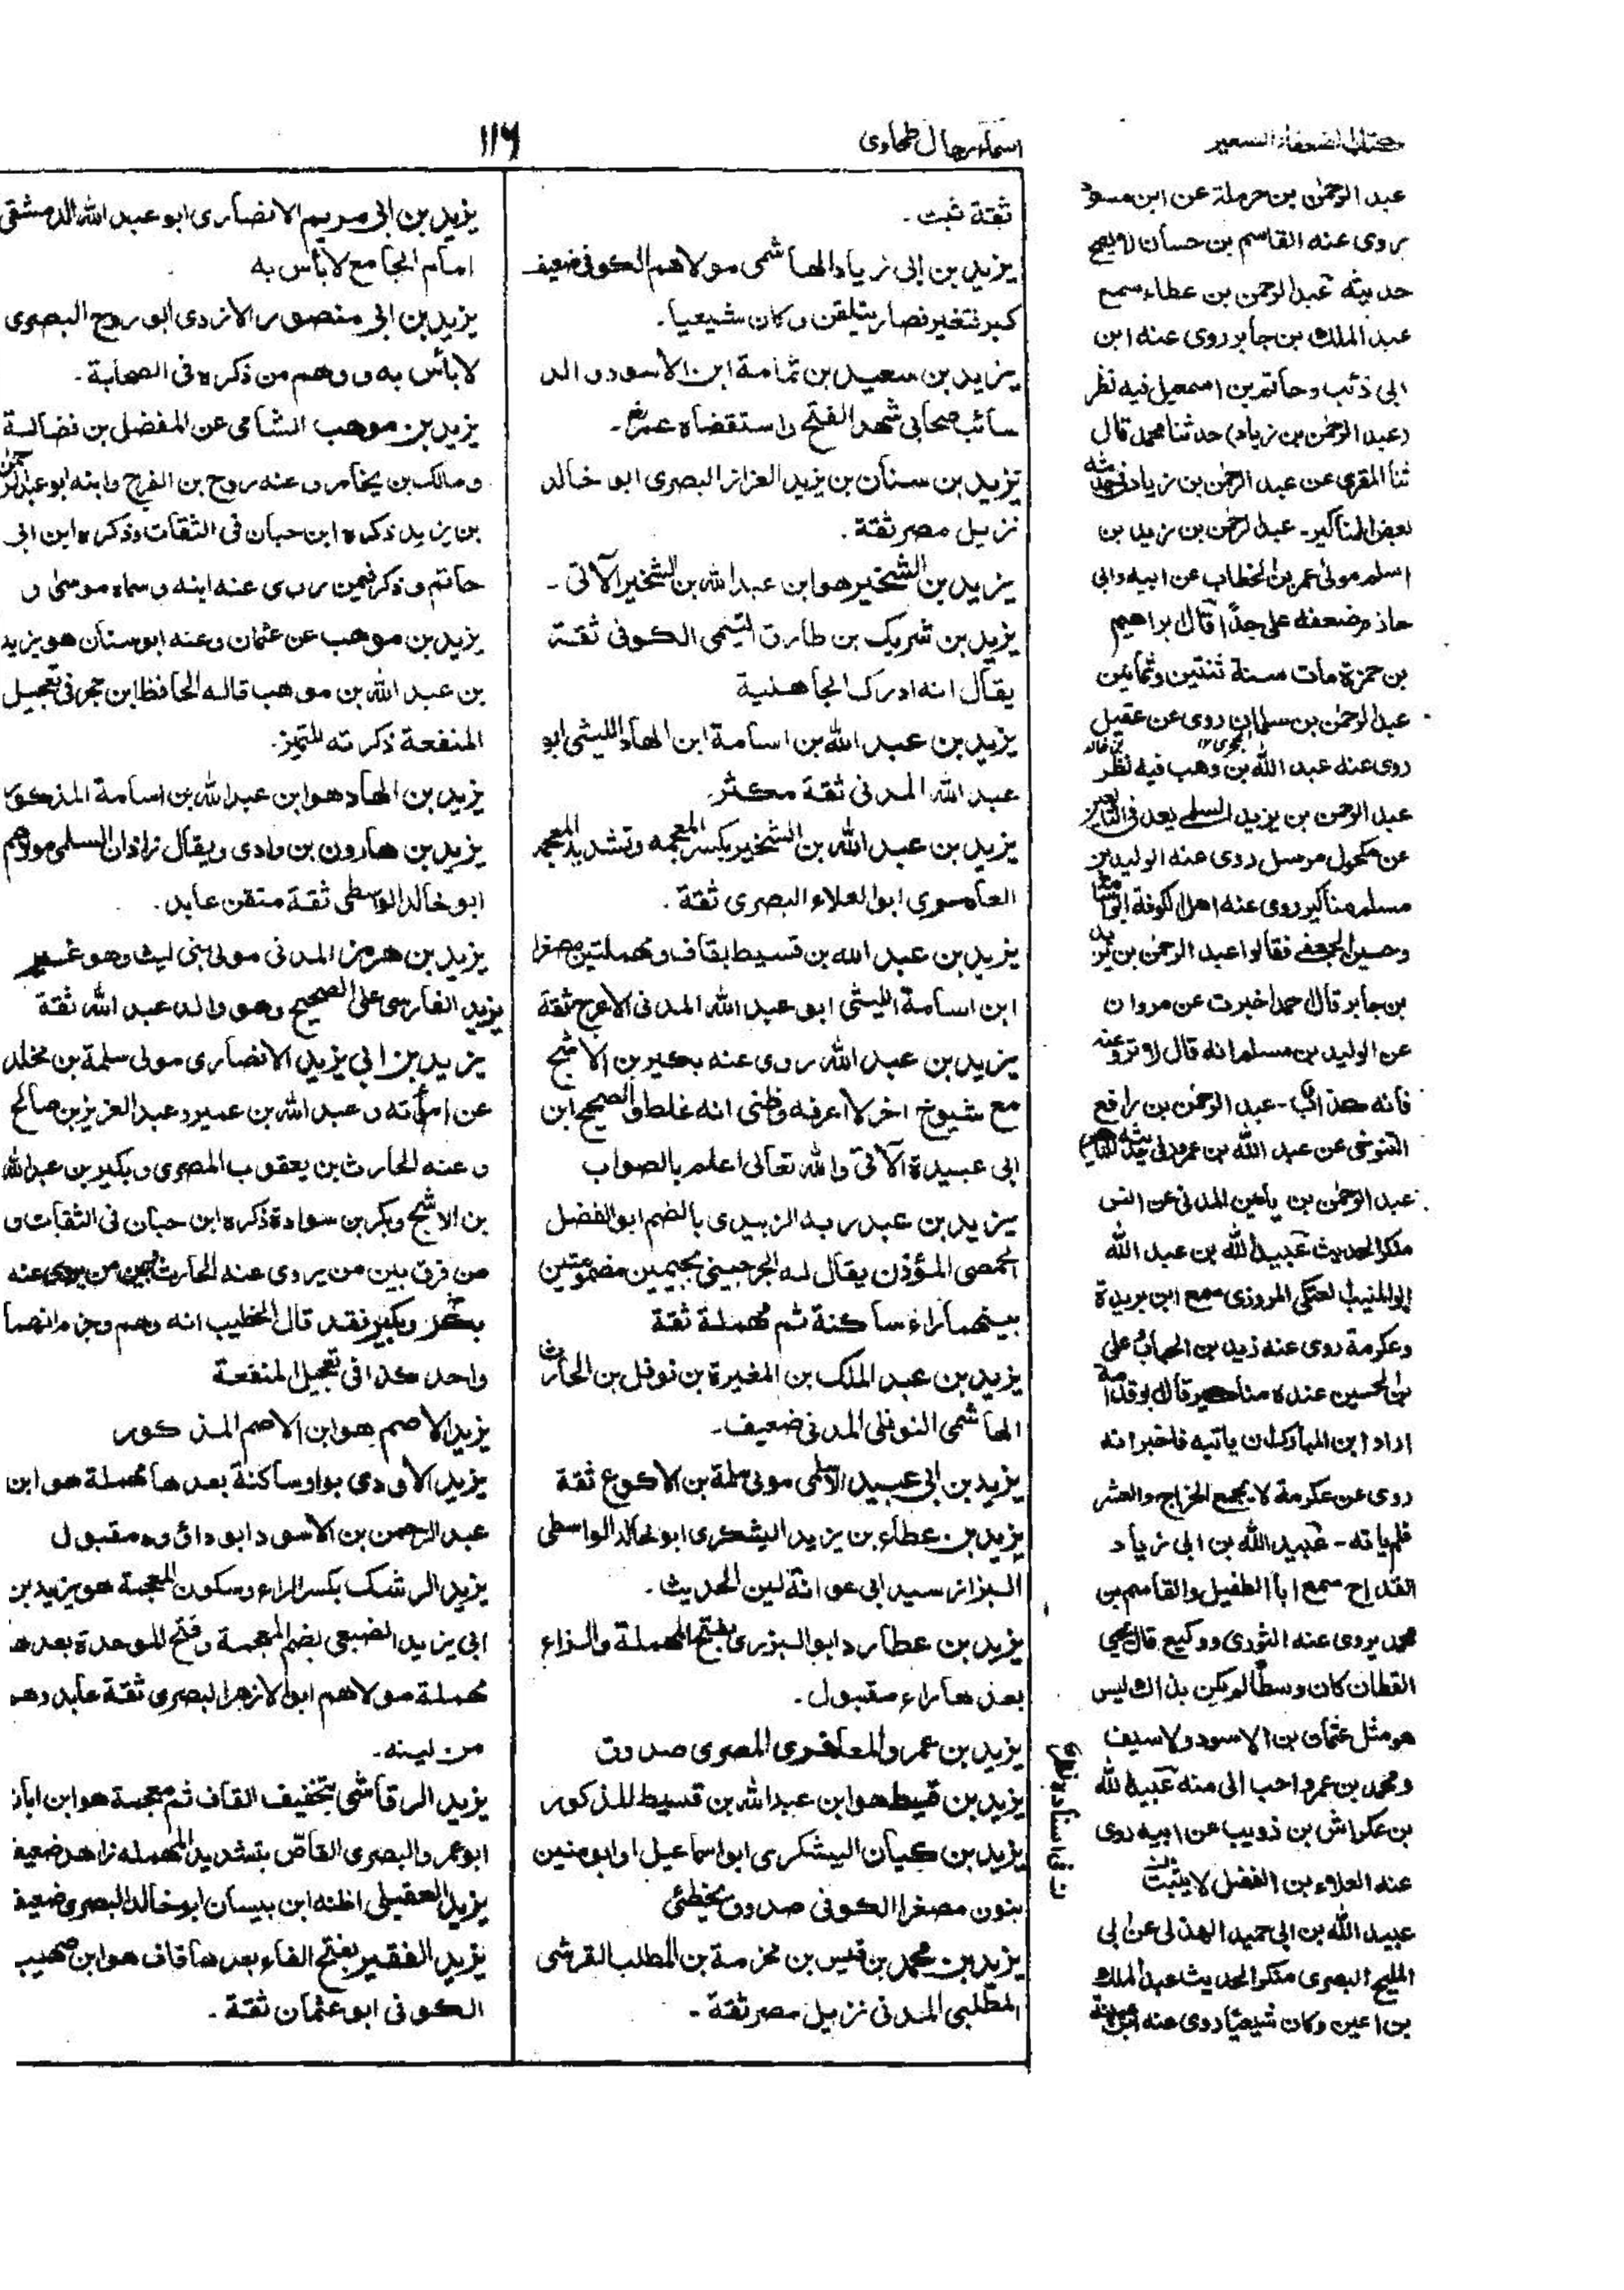 كتاب الضعفاء الصغير
عبد الرحمٰن بن حرملة عن ابن مسعود
روى عنه القاسم بن حسان لا يصح
حديثه عبد الرحمن بن عطاء سمع
عبد الملك بن جابر روى عنه ابن
ابى ذئب وحاتم بن اسمعيل فيه نظر
(عبد الرحمٰن بن زياد) حدثنا محمد قال
ثنا المقرى عن عبد الرحمٰن بن زياد فى حديثه
بعض المناكير - عبد الرحمٰن بن زيد بن
اسلم مولى عمر بن الخطاب عن ابيه وابى
حازم ضعفه على جدًا قال ابراهيم
بن حمزة مات سنة ثنتين وثمانين
عبد الرحمٰن بن سلمان روى عن عقيل بن خالد
روى عنه عبد الله بن وهب فيه نظر
عبد الرحمن بن يزيد السلمى يعد فى
عن مكحول مرسل روى عنه الوليد بن
مسلم مناكير روى عنه اهل الكوفة ابو اسامة
وحسين الجعفى فقالوا عبد الرحمٰن بن يزيد
بن جابر قال محمد اخبرت عن مروان
عن الوليد بن مسلم انه قال لا ترو عنه
فانه كذاب - عبد الرحمٰن بن رافع
التنوخى عن عبد الله بن عمرو فى حديثه المناكير
عبد الرحمٰن بن يامين المدنى عن انس
منكر الحديث عبيد الله بن عبد الله
ابو المنيب العتكى المروزى سمع ابن بريدة
وعكرمة روى عنه زيد بن الحباب على
بن الحسين عنده مناكير قال ابو قدامة
اراد ابن المبارك ان ياتيه فاخبر انه
روى عن عكرمة لا يجمع الخراج والعشر
فلم ياته - عبيد الله بن ابى زياد
القداح سمع ابا الطفيل والقاسم بن
محمد يروى عنه الثورى ووكيع قال يحيى
القطان كان وسطًا لم يكن بذاك ليس
هو مثل عثمان بن الاسود ولا سيف
ومحمد بن عمرو احب الى منه عبيد الله
بن عكراش بن ذويب عن ابيه روى
عنه العلاء بن الفضل لا يثبت
عبيد الله بن ابى حميد الهذلى عن ابى
المليح البصرى منكر الحديث عبد الملك
بن اعين وكان شيعيًا روى عنه ابن عيينة
ن فى اسناده نظر
اسماء رجال طحاوى
١١٦
ثقة ثبت -
يزيد بن ابى زياد الهاشمى مولاهم الكوفى ضعيف
كبر فتغير فصار يتلقن وكان شيعيا -
يزيد بن سعيد بن ثمامة ابن الاسود والد
سائب صحابى شهد الفتح واستقضاه عمر -
يزيد بن سنان بن يزيد القزاز البصرى ابو خالد
نزيل مصر ثقة .
يزيد بن الشخير هو ابن عبد الله بن الشخير الآتى -
يزيد بن شريك بن طارق التيمى الكوفى ثقة
يقال انه ادرك الجاهلية
يزيد بن عبد الله بن اسامة ابن الهاد الليثى ابو
عبد الله المدنى ثقة مكثر .
يزيد بن عبد الله بن الشخير بكسر المعجمه وتشديد المعجمه
العامرى ابو العلاء البصرى ثقة .
يزيد بن عبد الله بن قسيط بقاف ومهملتين مصغرا
ابن اسامة الليثى ابو عبد الله المدنى الاعرج ثقة
يزيد بن عبد الله روى عنه بكير بن الاشج
مع شيوخ اخر لا اعرفه وظنى انه غلط والصحيح ابن
ابى عبيدة الآتى والله تعالى اعلم بالصواب
يزيد بن عبد ربه الزبيدى بالضم ابو الفضل
الحمصى المؤذن يقال له الجرجسى بجيمين مضمومتين
بينهما راء ساكنة ثم مهملة ثقة
يزيد بن عبد الملك بن المغيرة بن نوفل بن الحارث
الهاشمى النوفلى المدنى ضعيف -
يزيد بن ابى عبيد الاسلمى مولى سلمة بن الاكوع ثقة
يزيد بن عطاء بن يزيد اليشكرى ابو خالد الواسطى
البزاز سيد ابى عوانة لين الحديث .
يزيد بن عطارد ابو البزرى بفتح المهملة والزاء
بعدها راء مقبول -
يزيد بن عمرو المعافرى المصرى صدوق
يزيد بن قسيط هو ابن عبد الله بن قسيط المذكور
يزيد بن كيسان اليشكرى ابو اسماعيل او ابو منين
بنون مصغرا الكوفى صدوق يخطئ
يزيد بن محمد بن قيس بن مخرمة بن المطلب القرشى
المطلبى المدنى نزيل مصر ثقة -
يزيد بن ابى مريم الانصارى ابو عبد الله الدمشقى
امام الجامع لا بأس به
يزيد بن ابى منصور الازدى ابو روح البصرى
لا بأس به ووهم من ذكره فى الصحابة .
يزيد بن موهب الشامى عن المفضل بن فضالة
ومالك بن يخامر وعنه روح بن الفرج وابنه ابو عبد الرحمٰن
بن يزيد ذكره ابن حبان فى الثقات وذكره ابن ابى
حاتم وذكر فيمن روى عنه ابنه وسماه موسى و
يزيد بن موهب عن عثمان وعنه ابو سنان هو يزيد
بن عبد الله بن موهب قاله الحافظ ابن حجر فى تعجيل
المنفعة ذكرته للتميز .
يزيد بن الهاد هو ابن عبد الله بن اسامة المذكور
يزيد بن هارون بن وادى ويقال زاذان السلمى مولاهم
ابو خالد الواسطى ثقة متقن عابد .
يزيد بن هرمز المدنى مولى بنى ليث وهو غير
يزيد الفارسى على الصحيح وهو والد عبد الله ثقة
يزيد بن ابى يزيد الانصارى مولى سلمة بن مخلد
عن امرأته وعبد الله بن عمير وعبد العزيز بن صالح
وعنه الحارث بن يعقوب المصرى وبكير بن عبد الله
بن الاشج وبكر بن سوادة ذكره ابن حبان فى الثقات و
من فرق بين من يروى عنه الحارث وبين من يروى عنه
بكر وبكير فقد قال الخطيب انه وهم وجزم انهما
واحد كذا فى تعجيل المنفعة
يزيد الاصم هو ابن الاصم المذكور
يزيد الأودى بواو ساكنة بعدها مهملة هو ابن
عبد الرحمن بن الاسود ابو داؤد مقبول
يزيد الرشك بكسر الراء وسكون المعجمة هو يزيد بن
ابى يزيد الضبعى بضم المعجمة وفتح الموحدة بعدها
مهملة مولاهم ابو الازهر البصرى ثقة عابد وهم
من لينه -
يزيد الرقاشى بتخفيف القاف ثم معجمة هو ابن ابان
ابو عمرو البصرى القاصّ بتشديد المهمله زاهد ضعيف
يزيد العقيلى اظنه ابن بيسان ابو خالد البصرى ضعيف
يزيد الفقير بفتح الفاء بعدها قاف هو ابن صهيب
الكوفى ابو عثمان ثقة .